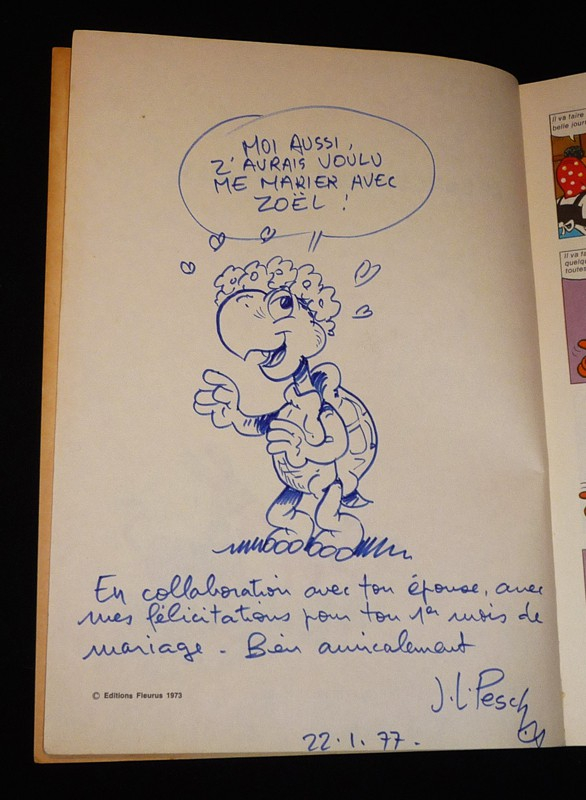 MOI AUSSI,
Z'AURAIS VOULU
ME MARIER AVEC
ZOËL !
En collaboration avec ton épouse, avec
mes félicitations pour ton 1er mois de
mariage - Bien amicalement
J.L. Pesch
© Editions Fleurus 1973
22.1.77.
Il va faire
belle jour
Il va
quelqu
toutes